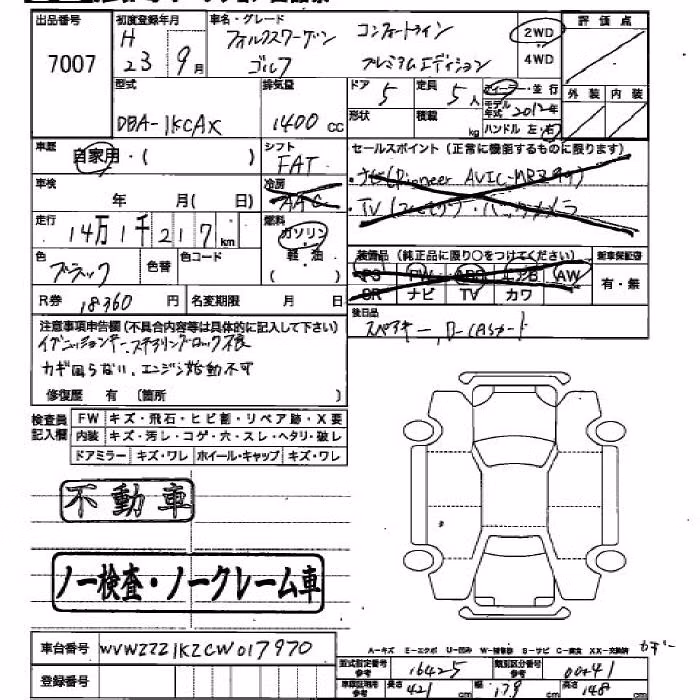 出品番号 7007
初度登録年月 H 23 9月
車名・グレード フォルクスワーゲン コンフォートライン
ゴルフ プレミアムエディション
2WD
4WD
評価点
外装 内装
型式 DBA-1KCAX
排気量 1400 cc
ドア 5
定員 5人
形状
積載 kg
ディーラー・並行
モデル年式 2012年
ハンドル 左・右
車歴 自家用・( )
シフト FAT
セールスポイント (正常に機能するものに限ります)
・ナビ(Pioneer AVIC-MRZ99)
・TV バックカメラ
車検 年 月( 日)
冷房 AAC
走行 14万1千217km
燃料 ガソリン
軽・油
( )
色 ブラック
色替
色コード
装備品 (純正品に限り○をつけてください) 新車保証書
PS PW ABS エアB AW
SR ナビ TV カワ
有・無
R券 18360 円
名変期限 月 日
後日品
スペアキー、ロールASカード
注意事項申告欄(不具合内容等は具体的に記入して下さい)
イグニッションキー、ステアリングロック不良
カギ回らない、エンジン始動不可
修復歴 有 (箇所 )
検査員記入欄
FW キズ・飛石・ヒビ割・リペア跡・X要
内装 キズ・汚レ・コゲ・穴・スレ・ヘタリ・破レ
ドアミラー キズ・ワレ ホイール・キャップ キズ・ワレ
不動車
ノー検査・ノークレーム車
車台番号 WVWZZZ1KZCW017970
登録番号
A-キズ E-エクボ U-凹み W-補修跡 S-サビ C-腐食 XX-交換済
型式指定番号 参考 16425
類別区分番号 参考 0041
車検証明用 参考 長さ 421 cm 幅 179 cm 高さ 148 cm